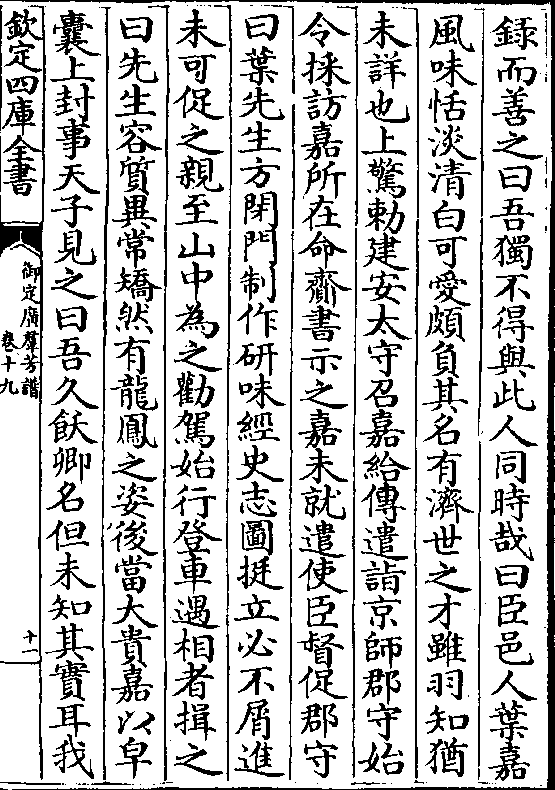 録而善之曰吾獨不得與此人同時哉曰臣邑人葉嘉
風味恬淡清白可愛頗負其名有濟世之才雖羽知猶
未詳也上驚勅建安太守召嘉給傳遣詣京師郡守始
令採訪嘉所在命齎書示之嘉未就遣使臣督促郡守
曰葉先生方閉門制作研味經史志圖挺立必不屑進
未可促之親至山中為之勸駕始行登車遇相者揖之
曰先生容質異常矯然有龍鳳之姿後當大貴嘉以皁
囊上封事天子見之曰吾久飫卿名但未知其實耳我
欽定四庫全書
御定廣羣芳譜
卷十九
十一